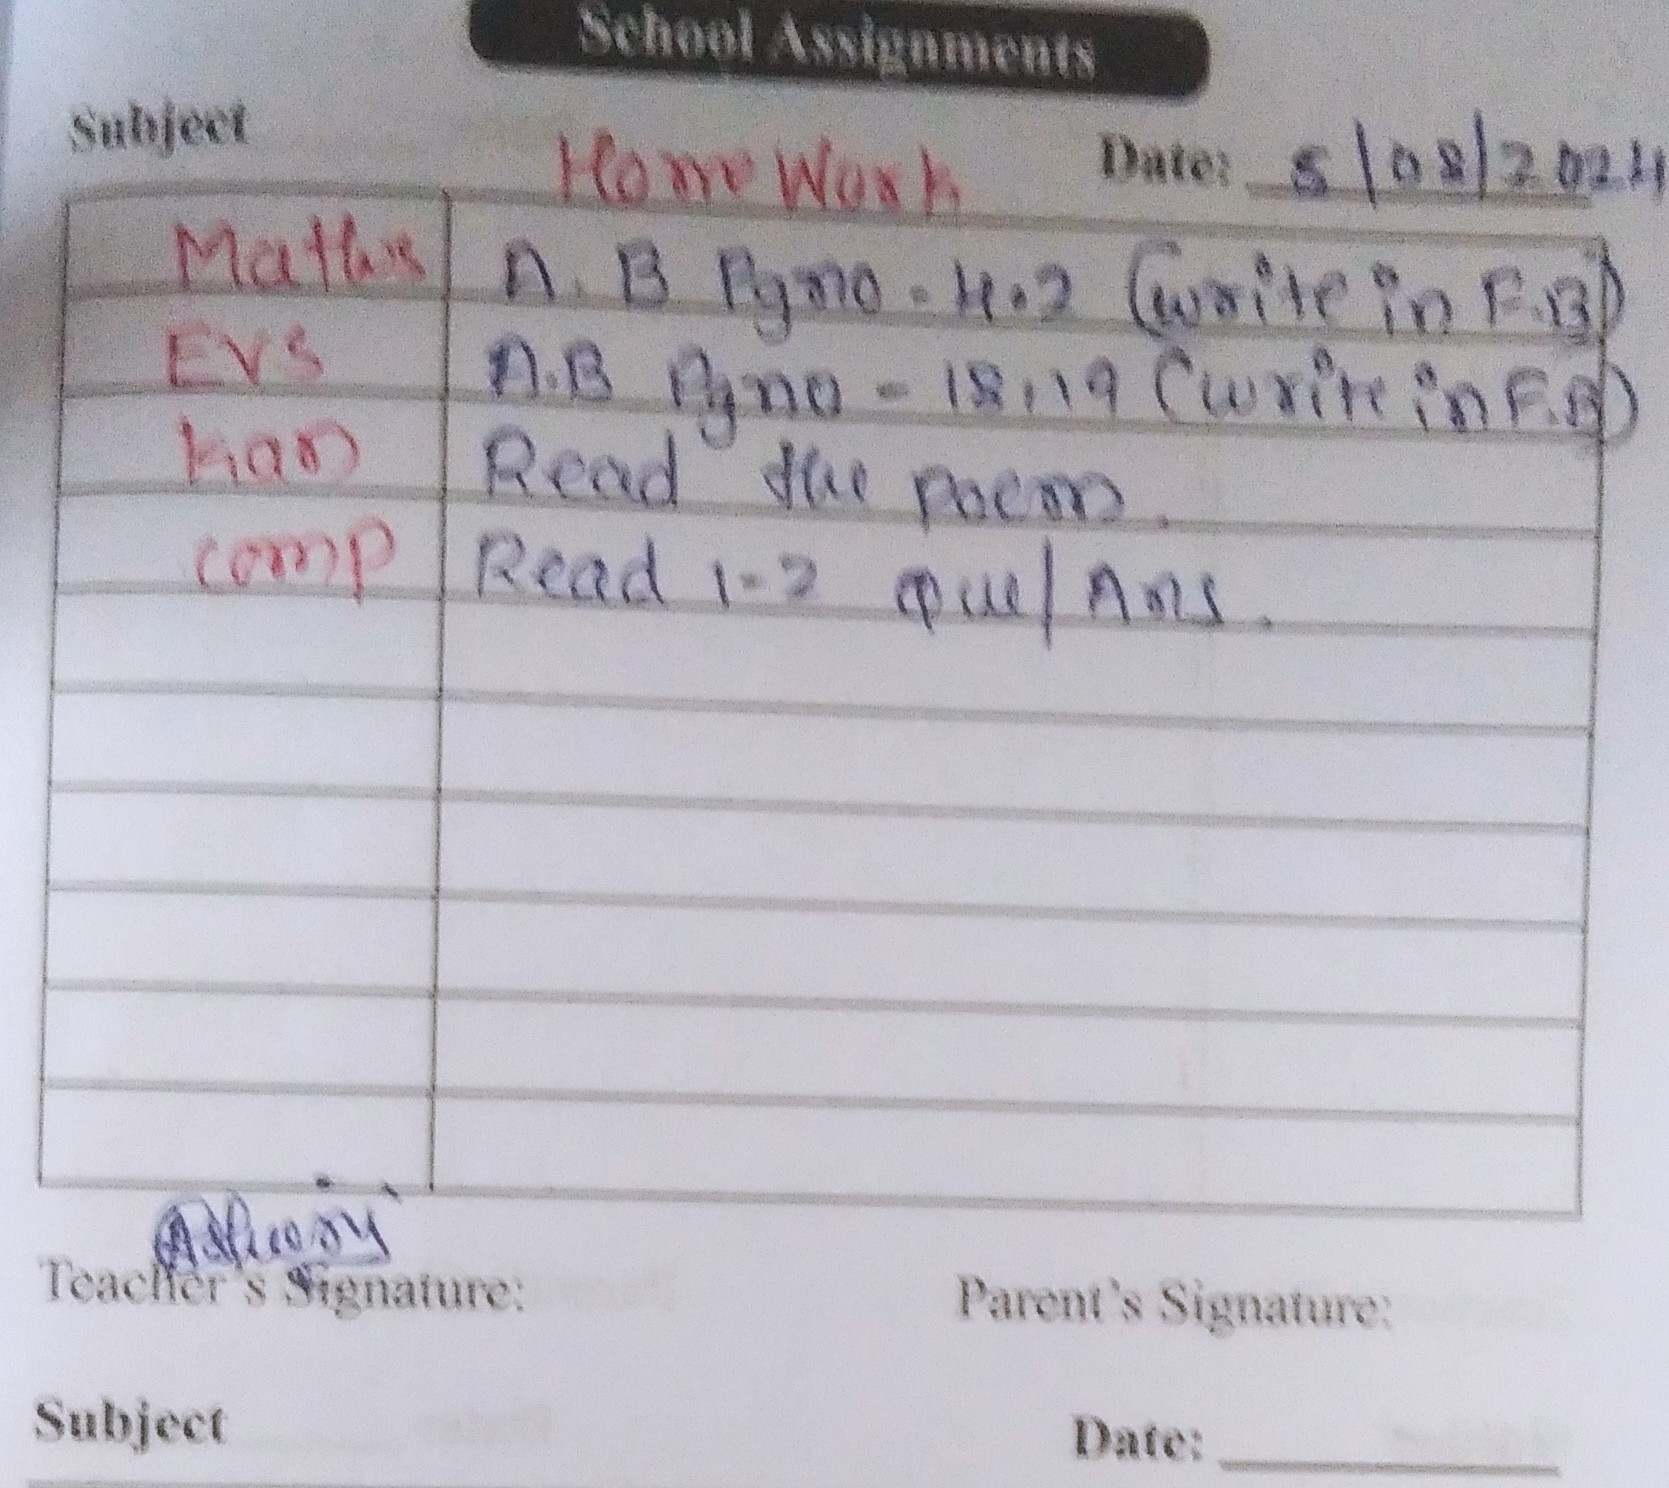 School Assignments
Subject Home Work Date: 5/08/2024
Maths A.B Pgno - 4.2 (write in F.B)
EVS A.B Pgno - 18,19 (write in F.B)
Kan Read the poem.
comp Read 1-2 que/Ans.
Teacher's Signature: Parent's Signature:
Subject Date: